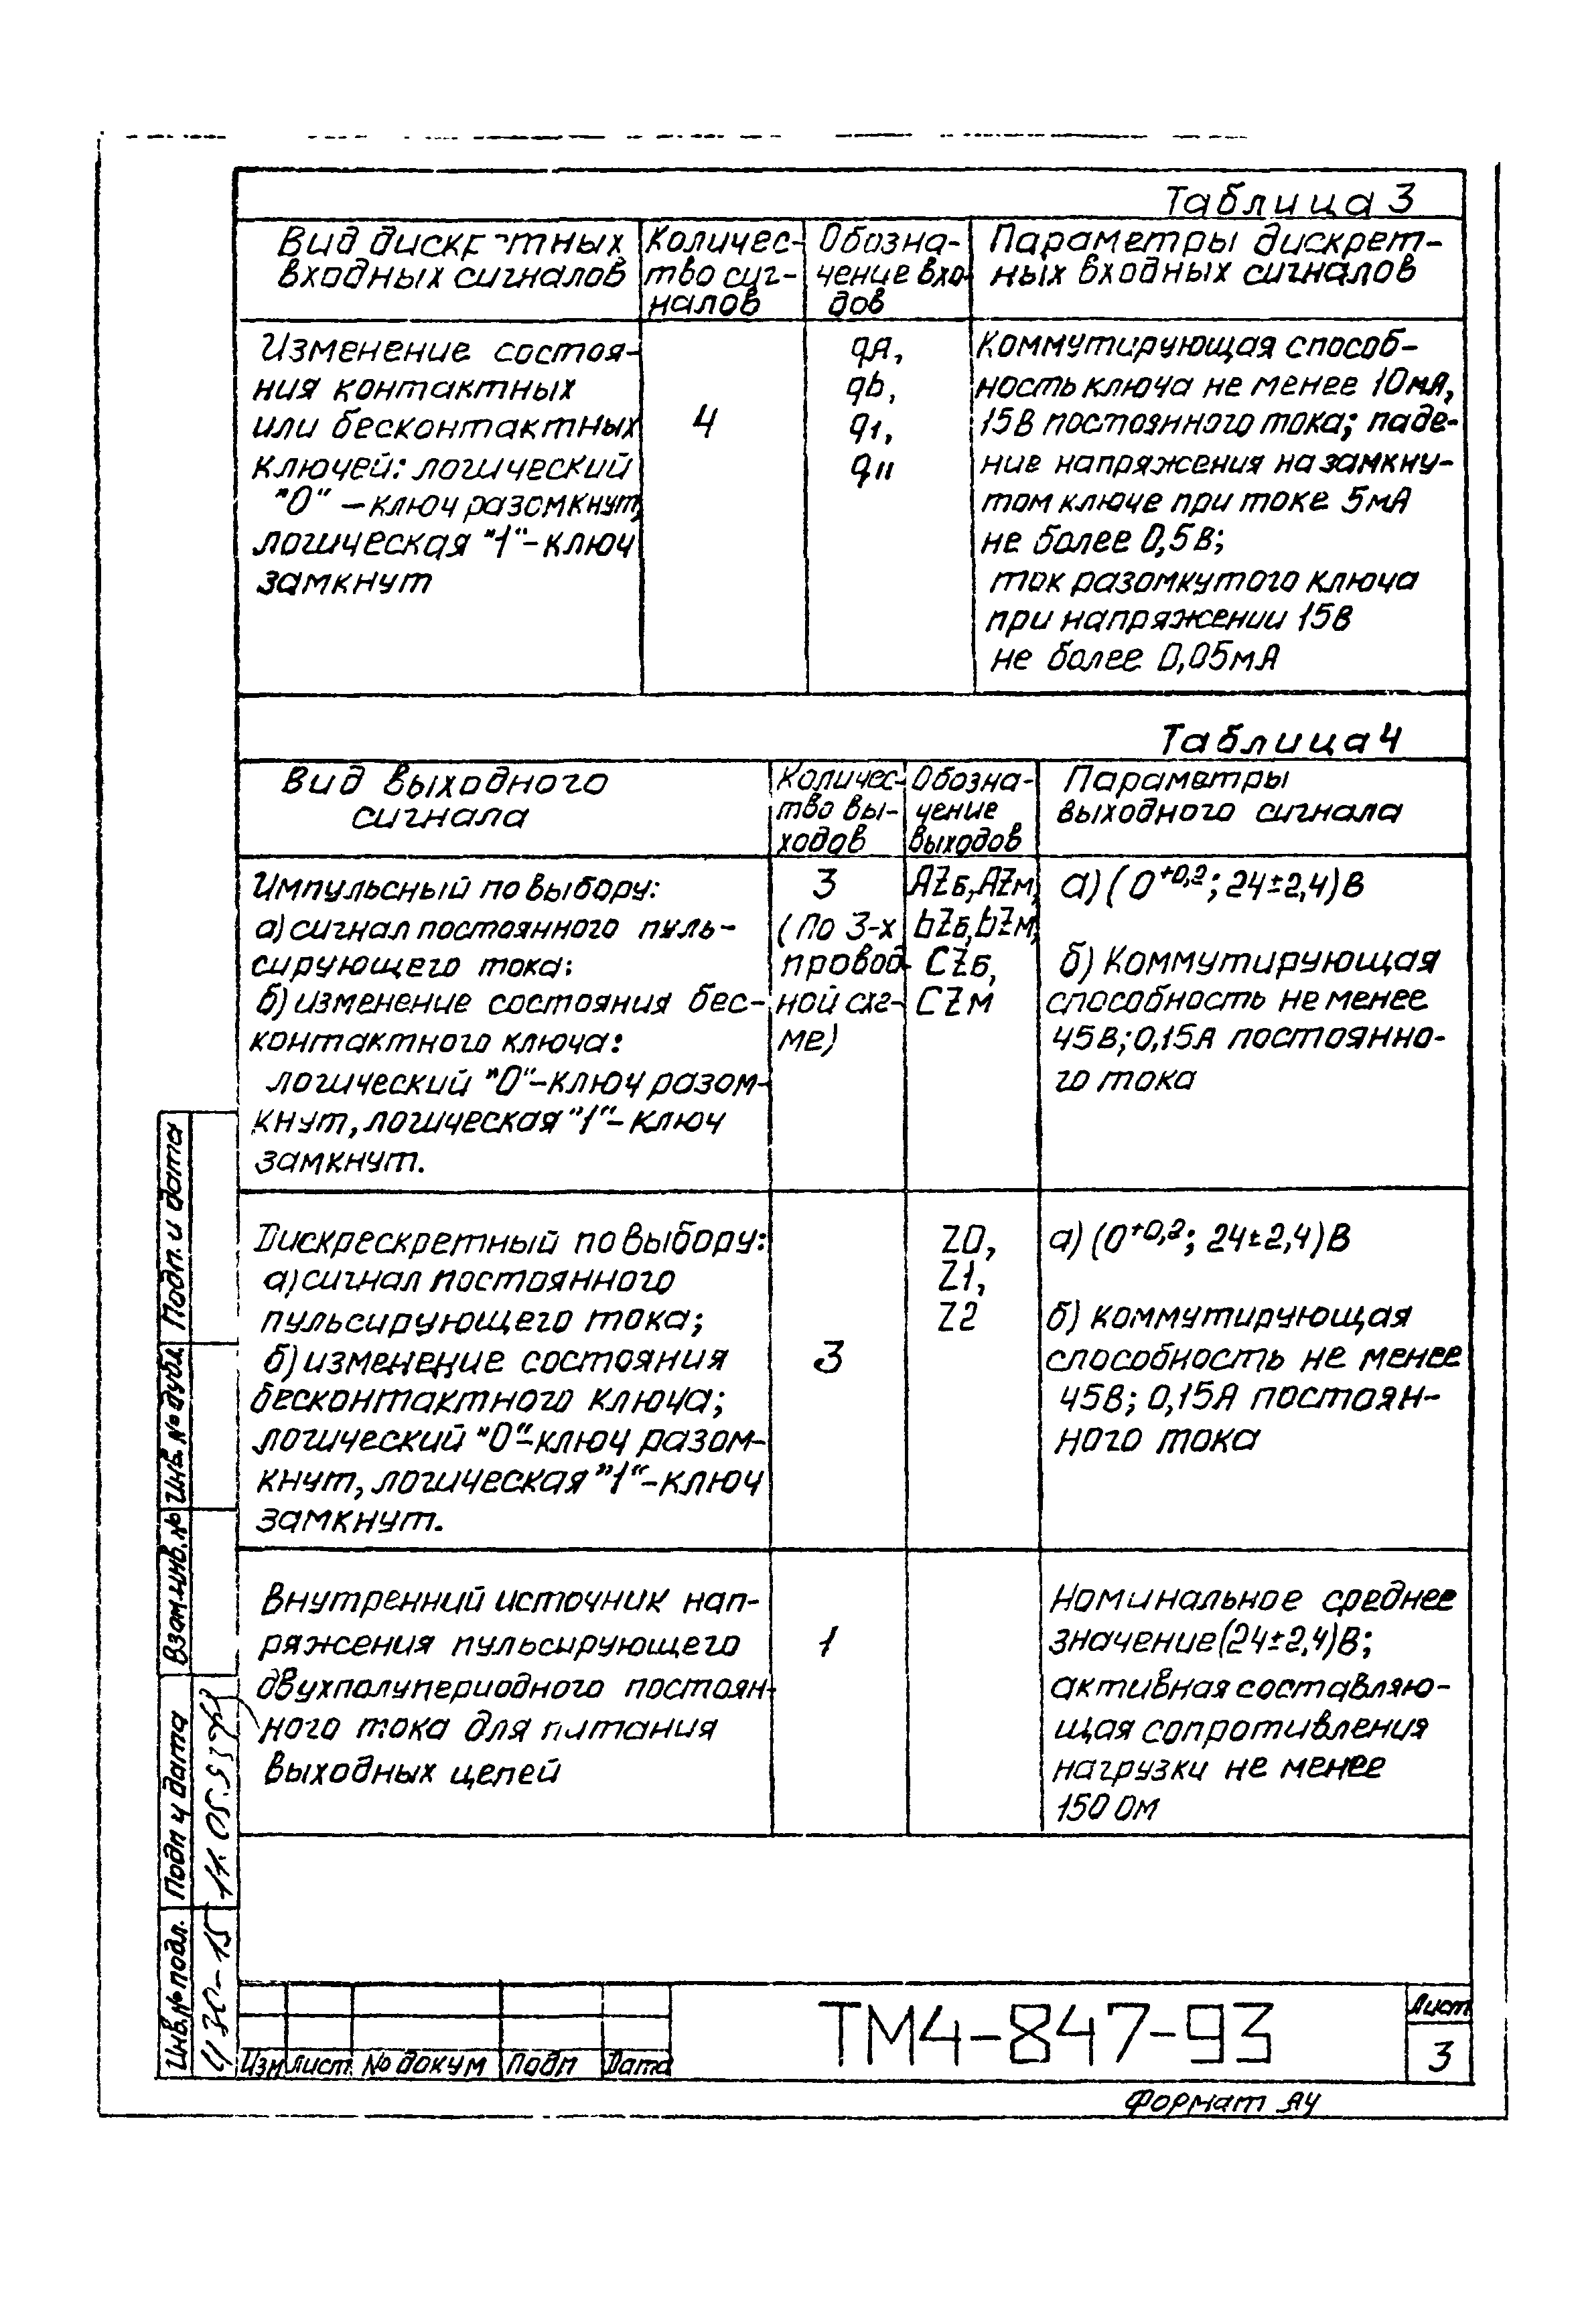 Таблица 3
Вид дискретных
входных сигналов
Количес-
тво сиг-
налов
Обозна-
чение вхо-
дов
Параметры дискрет-
ных входных сигналов
Изменение состоя-
ния контактных
или бесконтактных
ключей: логический
"0" – ключ разомкнут,
логическая "1" - ключ
замкнут
4
qА,
qb,
q1,
q11
Коммутирующая способ-
ность ключа не менее 10мА,
15В постоянного тока; паде-
ние напряжения на замкну-
том ключе при токе 5мА
не более 0,5В;
ток разомкутого ключа
при напряжении 15В
не более 0,05мА
Таблица 4
Вид выходного
сигнала
Количес-
тво вы-
ходов
Обозна-
чение
выходов
Параметры
выходного сигнала
Импульсный по выбору:
а) сигнал постоянного пуль-
сирующего тока:
б) изменение состояния бес-
контактного ключа:
логический "0"-ключ разом-
кнут, логическая "1"- ключ
замкнут.
3
(По 3-х
провод-
ной схе-
ме)
АZб, АZм,
bZб, bZм,
СZб,
СZм
а) (0⁺⁰,²; 24±2,4)В
б) Коммутирующая
способность не менее
45В; 0,15А постоянно-
го тока
Дискрескретный по выбору:
а) сигнал постоянного
пульсирующего тока;
б) изменение состояния
бесконтактного ключа;
логический "0"-ключ разом-
кнут, логическая "1"-ключ
замкнут.
3
Z0,
Z1,
Z2
а) (0⁺⁰,²; 24±2,4)В
б) коммутирующая
способность не менее
45В; 0,15А постоян-
ного тока
Внутренний источник нап-
ряжения пульсирующего
двухполупериодного постоян-
ного тока для питания
выходных цепей
1
Номинальное среднее
значение (24±2,4)В;
активная составляю-
щая сопротивления
нагрузки не менее
150 Ом
Подп. и дата
Инв. № дубл.
Взам. инв. №
Подп и дата
11.05.93г
Инв. № подл.
430-15
Изм
Лист
№ докум
Подп
Дата
ТМ4-847-93
Лист
3
Формат А4